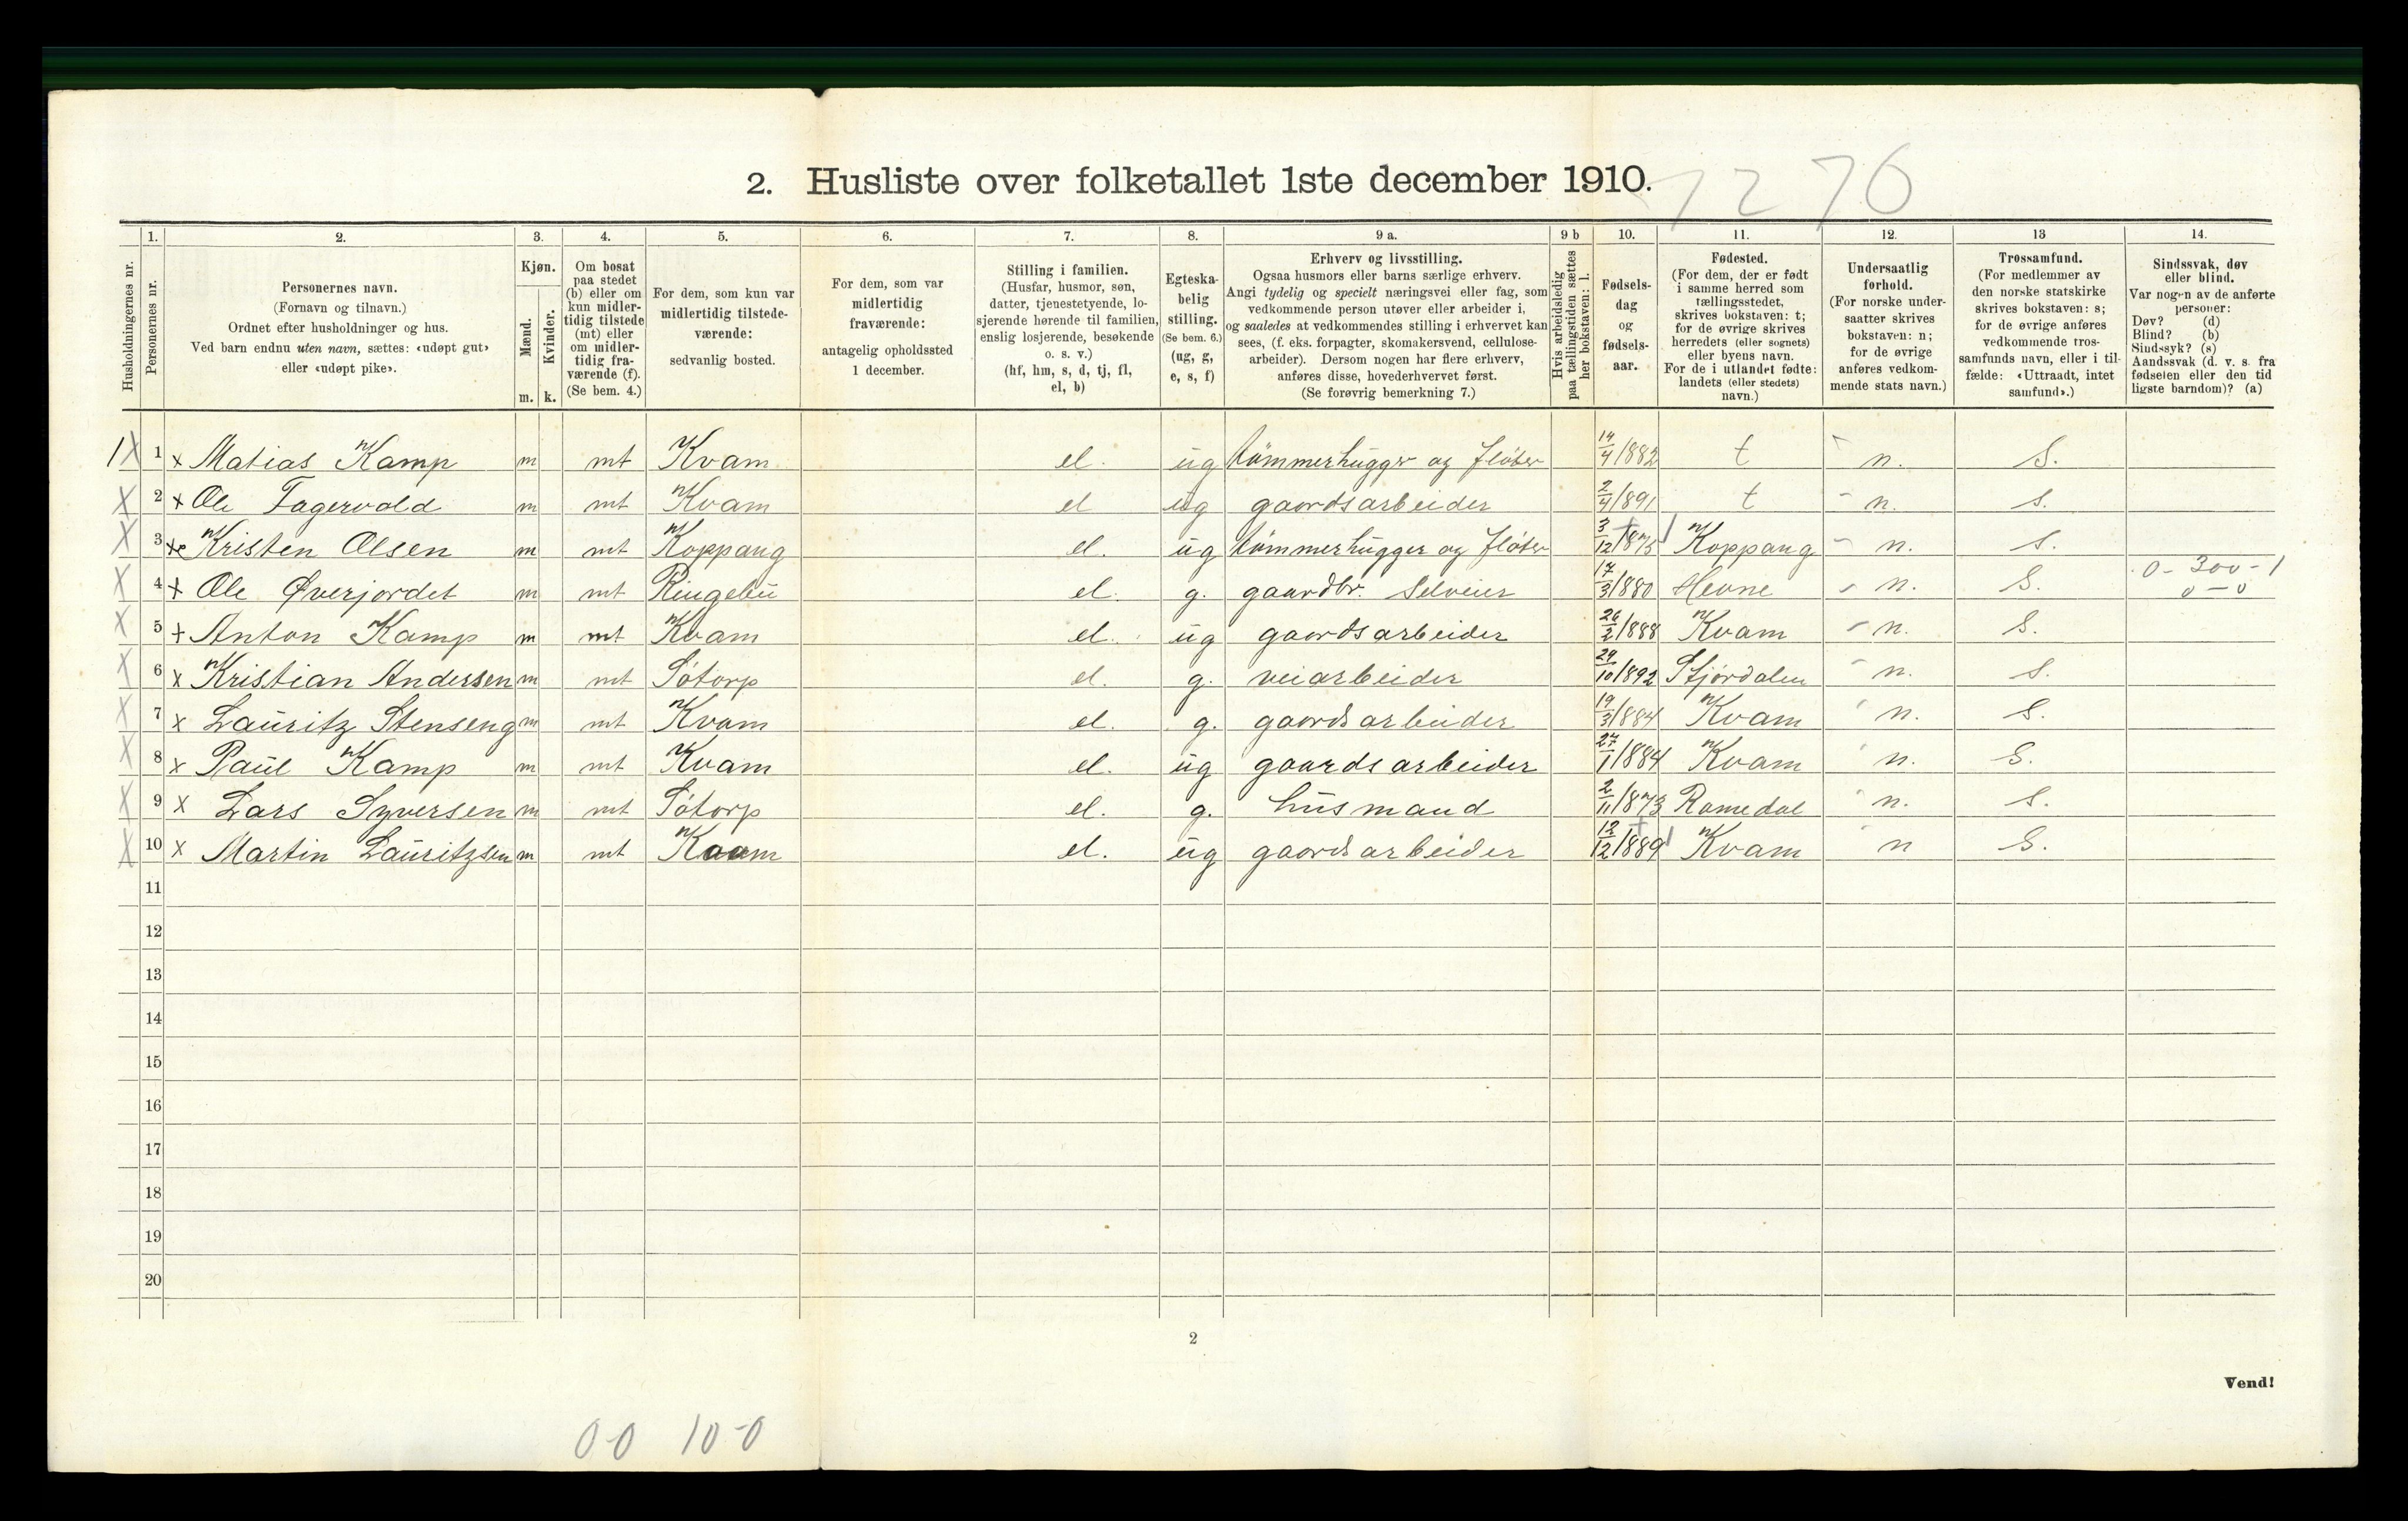 2. Husliste over folketallet 1ste december 1910.
1276
1. 2. 3. 4. 5. 6. 7. 8. 9 a. 9 b 10. 11. 12. 13 14.
Husholdningernes nr.
Personernes nr.
Personernes navn.
(Fornavn og tilnavn.)
Ordnet efter husholdninger og hus.
Ved barn endnu uten navn, sættes: «udøpt gut»
eller «udøpt pike».
Kjøn.
Mænd.
Kvinder.
m. k.
Om bosat
paa stedet
(b) eller om
kun midler-
tidig tilstede
(mt) eller
om midler-
tidig fra-
værende (f).
(Se bem. 4.)
For dem, som kun var
midlertidig tilstede-
værende:
sedvanlig bosted.
For dem, som var
midlertidig
fraværende:
antagelig opholdssted
1 december.
Stilling i familien.
(Husfar, husmor, søn,
datter, tjenestetyende, lo-
sjerende hørende til familien,
enslig losjerende, besøkende
o. s. v.)
(hf, hm, s, d, tj, fl,
el, b)
Egteska-
belig
stilling.
(Se bem. 6.)
(ug, g,
e, s, f)
Erhverv og livsstilling.
Ogsaa husmors eller barns særlige erhverv.
Angi tydelig og specielt næringsvei eller fag, som
vedkommende person utøver eller arbeider i,
og saaledes at vedkommendes stilling i erhvervet kan
sees, (f. eks. forpagter, skomakersvend, cellulose-
arbeider). Dersom nogen har flere erhverv,
anføres disse, hovederhvervet først.
(Se forøvrig bemerkning 7.)
Hvis arbeidsledig
paa tællingstiden sættes
her bokstaven: l.
Fødsels-
dag
og
fødsels-
aar.
Fødested.
(For dem, der er født
i samme herred som
tællingsstedet,
skrives bokstaven: t;
for de øvrige skrives
herredets (eller sognets)
eller byens navn.
For de i utlandet fødte:
landets (eller stedets)
navn.)
Undersaatlig
forhold.
(For norske under-
saatter skrives
bokstaven: n;
for de øvrige
anføres vedkom-
mende stats navn.)
Trossamfund.
(For medlemmer av
den norske statskirke
skrives bokstaven: s;
for de øvrige anføres
vedkommende tros-
samfunds navn, eller i til-
fælde: «Uttraadt, intet
samfund».)
Sindssvak, døv
eller blind.
Var nogen av de anførte
personer:
Døv? (d)
Blind? (b)
Sindssyk? (s)
Aandssvak (d. v. s. fra
fødselen eller den tid
ligste barndom)? (a)
1 X 1 x Matias Kamp m mt Kvam el. ug tømmerhugger og fløter 14/4/1882 t n. S.
X 2 x Ole Fagervold m mt Kvam el ug gaardsarbeider 2/4/1891 t n. S.
X 3 x Kristen Olsen m mt Koppang el. ug tømmerhugger og fløter 3/12/1875 Koppang n. S.
X 4 x Ole Øverjordet m mt Ringebu el. g. gaardbr. Selveier 17/3/1880 Hevne n. S. 0-300-1
0-0
X 5 + Anton Kamp m mt Kvam el. ug gaardsarbeider 26/2/1888 Kvam n. S.
X 6 x Kristian Andersen m mt Sötorp el. g. veiarbeider 29/10/1892 Stjørdalen n. S.
X 7 x Lauritz Stenseng m mt Kvam el. g. gaardsarbeider 19/3/1884 Kvam n. S.
X 8 x Paul Kamp m mt Kvam el. ug gaardsarbeider 27/1/1884 Kvam n. S.
X 9 x Lars Syversen m mt Sötorp el. g. husmand 2/11/1873 Romedal n. S.
X 10 x Martin Lauritzsen m mt Kvam el. ug gaardsarbeider 12/12/1889 Kvam n S.
11
12
13
14
15
16
17
18
19
20
2
Vend!
0-0 10-0